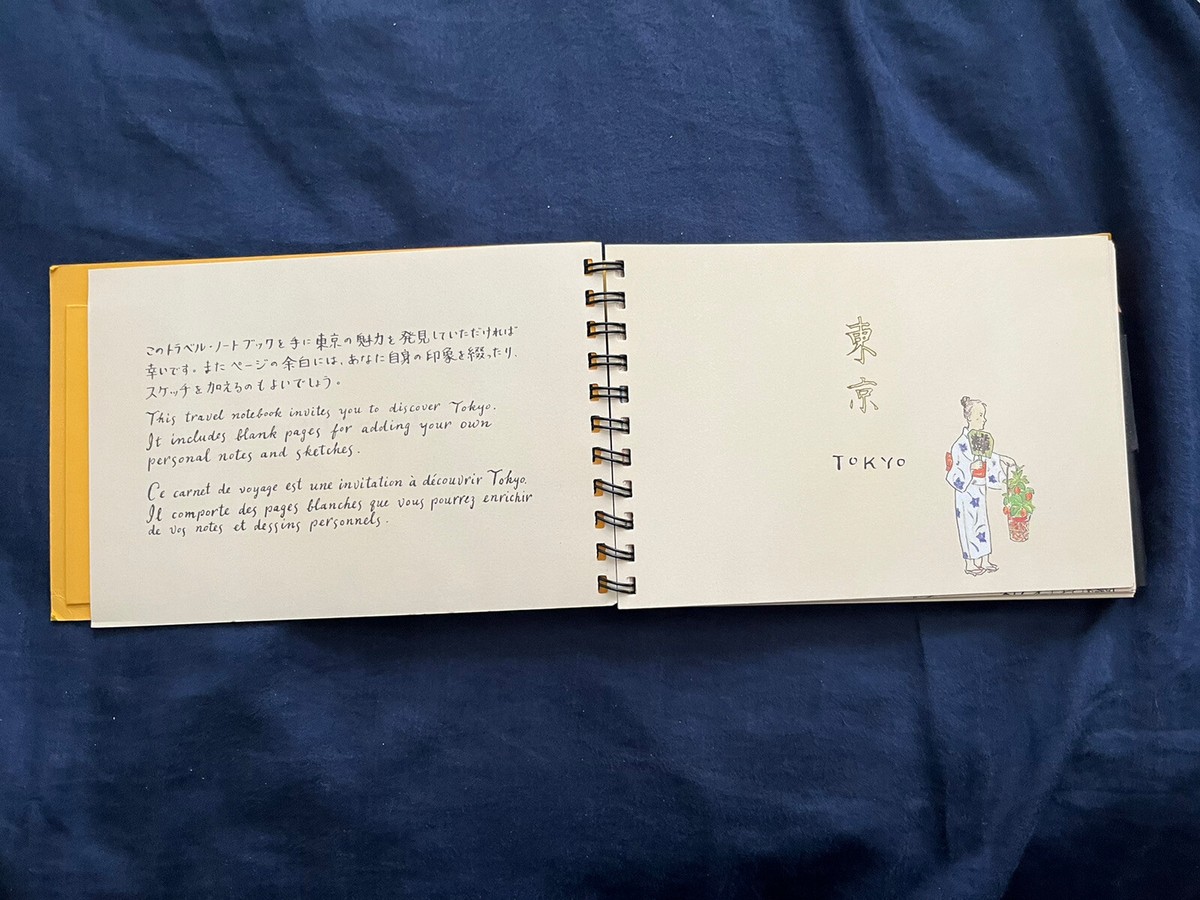 このトラベル・ノートブックを手に東京の魅力を発見していただければ
幸いです。またページの余白には、あなた自身の印象を綴ったり、
スケッチを加えるのもよいでしょう。
This travel notebook invites you to discover Tokyo.
It includes blank pages for adding your own
personal notes and sketches.
Ce carnet de voyage est une invitation à découvrir Tokyo.
Il comporte des pages blanches que vous pourrez enrichir
de vos notes et dessins personnels.
東
京
TOKYO